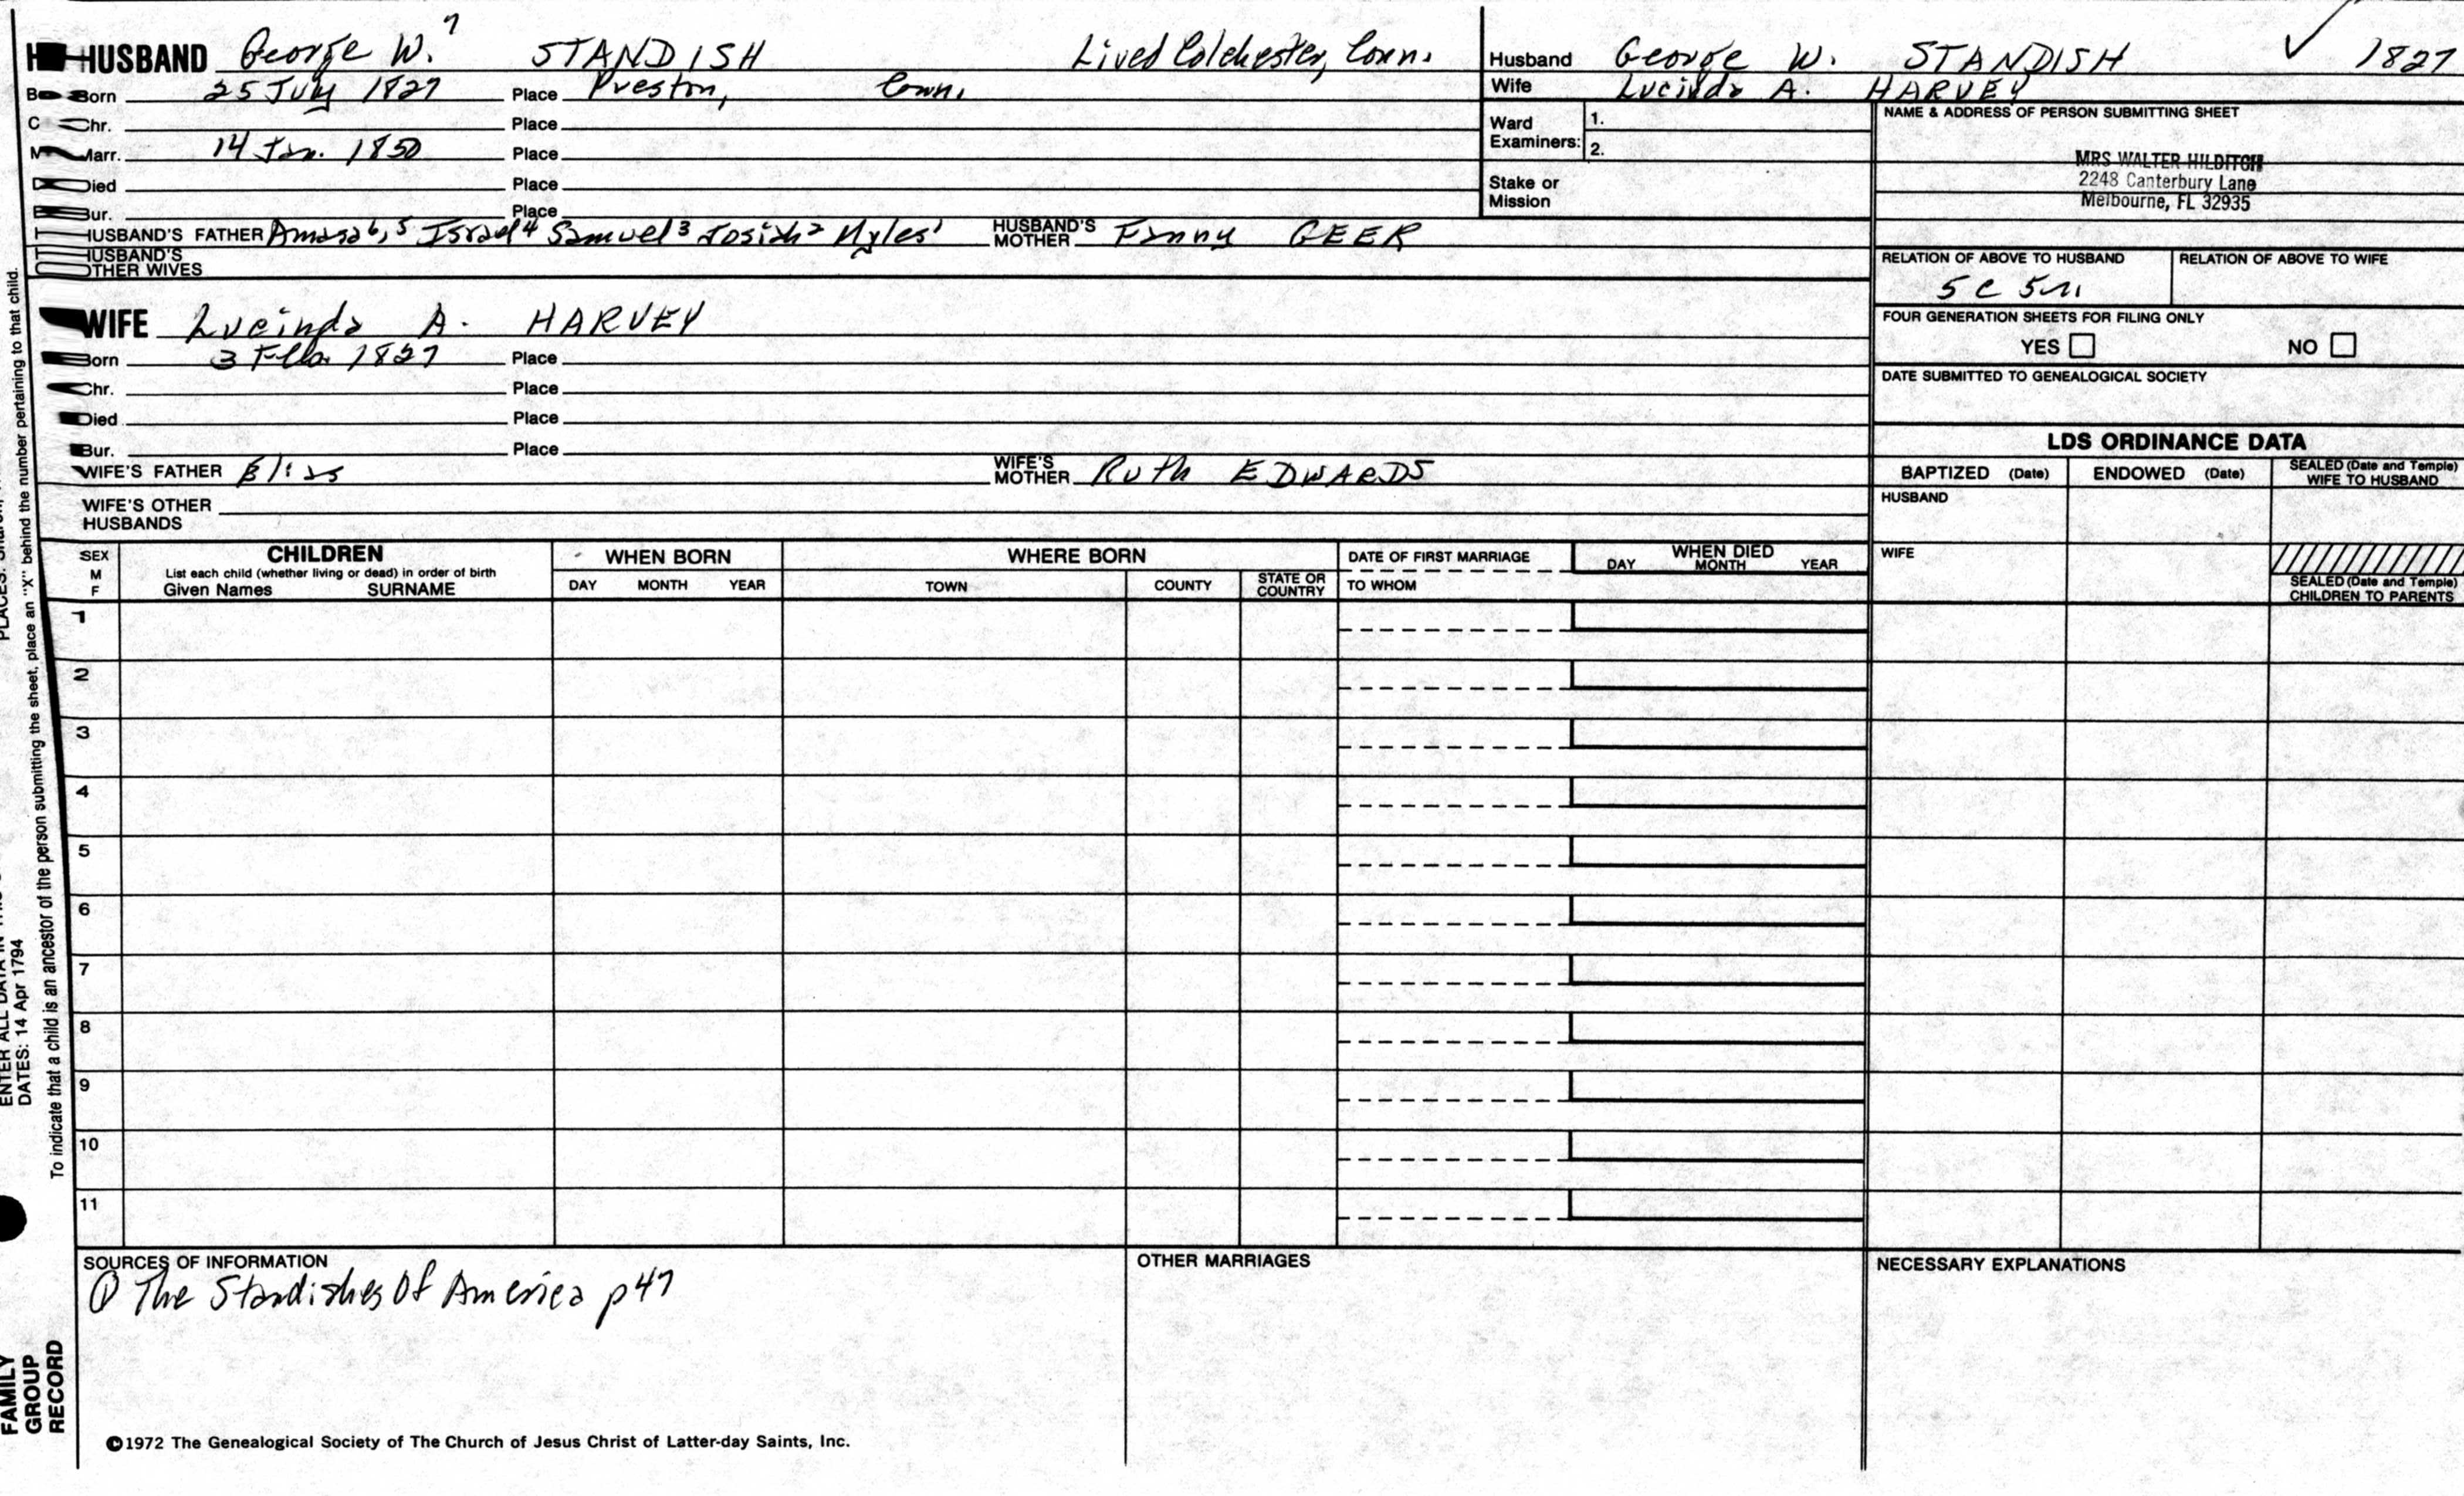 HUSBAND George W.⁷ STANDISH Lived Colchester, Conn.
Born 25 July 1827 Place Preston, Conn.
Chr. Place
Marr. 14 Jan. 1850 Place
Died Place
Bur. Place
HUSBAND'S FATHER Amasa⁶,⁵ Israel⁴ Samuel³ Josiah² Myles¹ HUSBAND'S MOTHER Fanny GEER
HUSBAND'S OTHER WIVES
WIFE Lucinda A. HARVEY
Born 3 Feb. 1827 Place
Chr. Place
Died Place
Bur. Place
WIFE'S FATHER Elias WIFE'S MOTHER Ruth EDWARDS
WIFE'S OTHER HUSBANDS
Husband George W. STANDISH ✓ 1827
Wife Lucinda A. HARVEY
Ward Examiners: 1.
2.
Stake or Mission
NAME & ADDRESS OF PERSON SUBMITTING SHEET
MRS WALTER HILDITCH
2248 Canterbury Lane
Melbourne, FL 32935
RELATION OF ABOVE TO HUSBAND RELATION OF ABOVE TO WIFE
5C 5n
FOUR GENERATION SHEETS FOR FILING ONLY
YES NO
DATE SUBMITTED TO GENEALOGICAL SOCIETY
LDS ORDINANCE DATA
BAPTIZED (Date) ENDOWED (Date) SEALED (Date and Temple) WIFE TO HUSBAND
HUSBAND
WIFE
SEALED (Date and Temple) CHILDREN TO PARENTS
SEX M F
CHILDREN
List each child (whether living or dead) in order of birth
Given Names SURNAME
WHEN BORN
DAY MONTH YEAR
WHERE BORN
TOWN COUNTY STATE OR COUNTRY
DATE OF FIRST MARRIAGE
TO WHOM
WHEN DIED
DAY MONTH YEAR
1
2
3
4
5
6
7
8
9
10
11
SOURCES OF INFORMATION
① The Standishes Of America p47
OTHER MARRIAGES
NECESSARY EXPLANATIONS
©1972 The Genealogical Society of The Church of Jesus Christ of Latter-day Saints, Inc.
DATES: 14 Apr 1794
To indicate that a child is an ancestor of the person submitting the sheet, place an "X" behind the number pertaining to that child.
FAMILY
GROUP
RECORD